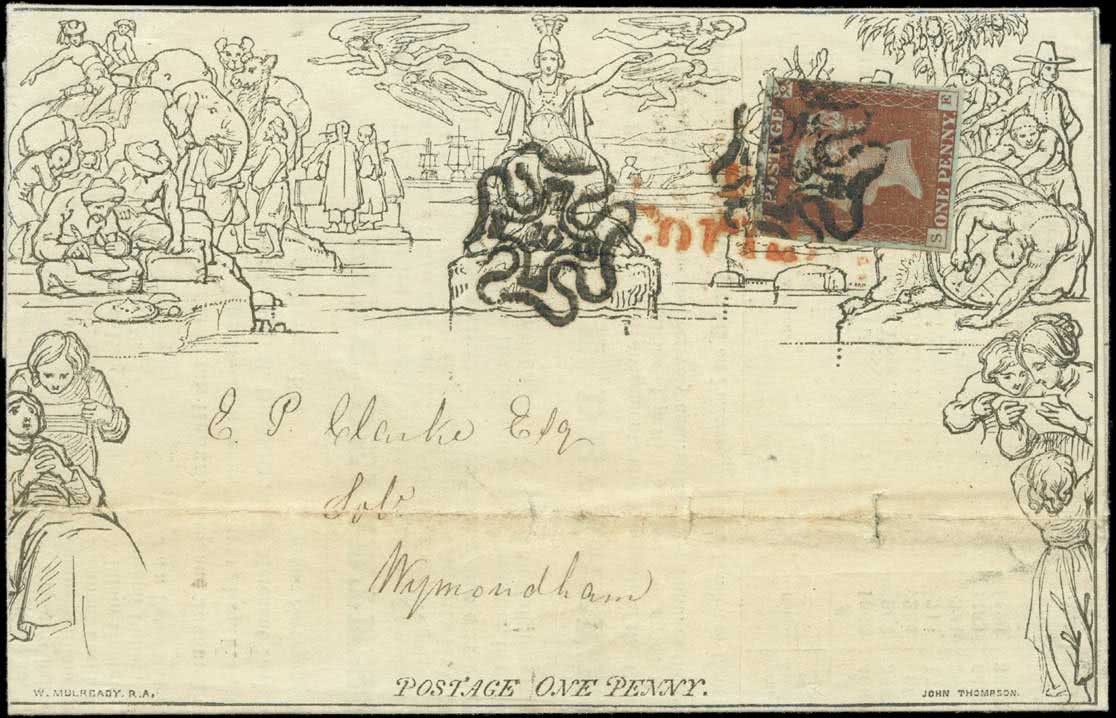 POSTAGE
ONE PENNY
S E
E. P. Clarke Esq
Solr
Wymondham
POSTAGE ONE PENNY.
W. MULREADY. R.A.
JOHN THOMPSON.